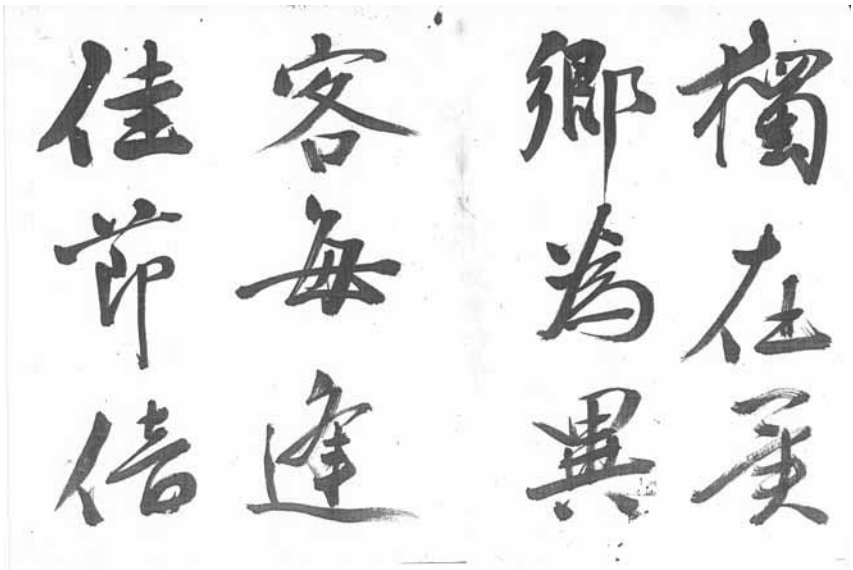 獨在異
鄉為異
客每逢
佳節倍